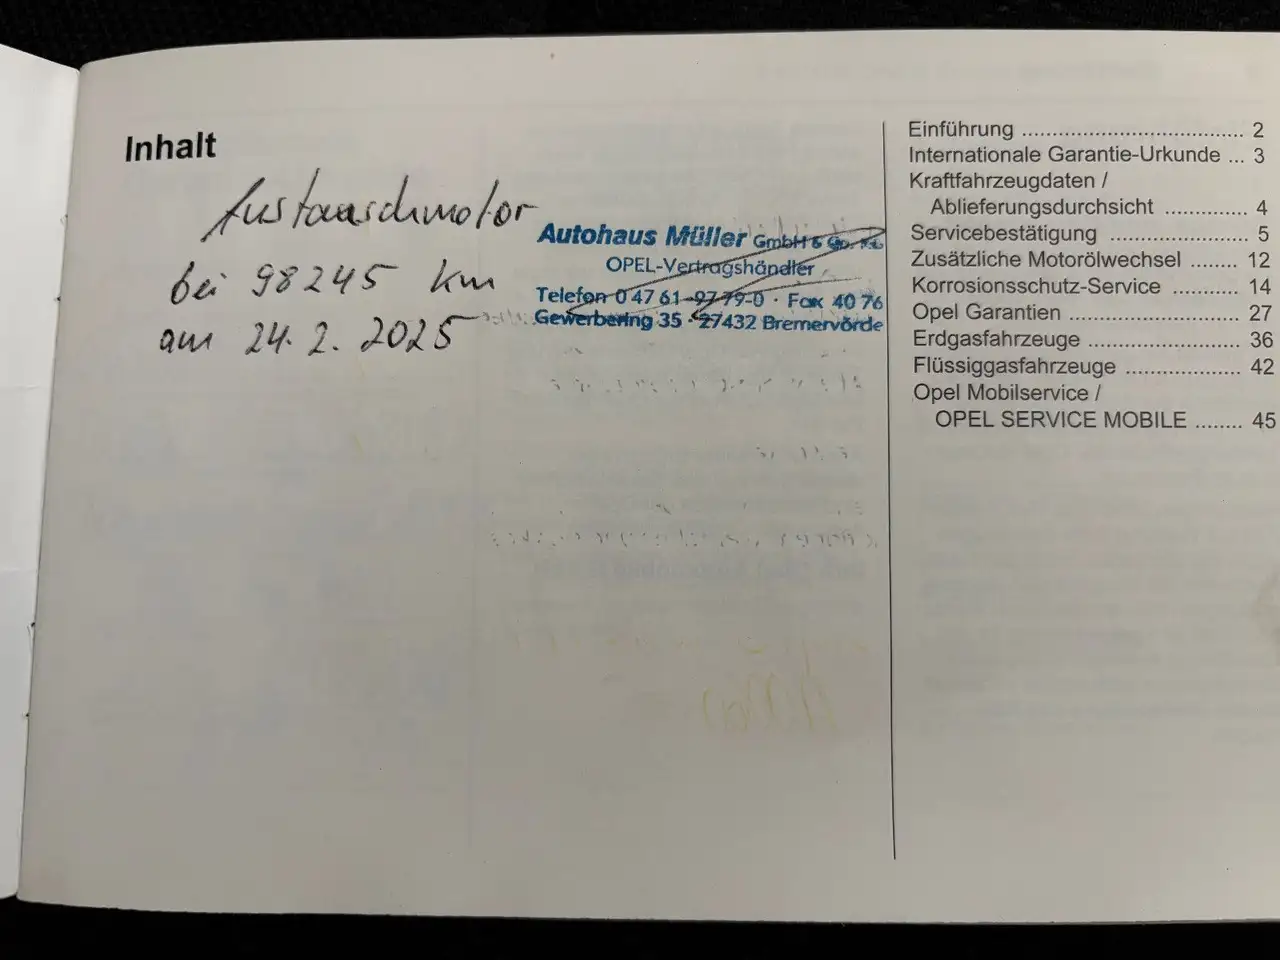 Inhalt
Austauschmotor
bei 98245 km
am 24.2.2025
Autohaus Müller GmbH & Co. KG
OPEL-Vertragshändler
Telefon 0 47 61-97 79-0 · Fax 40 76
Gewerbering 35 · 27432 Bremervörde
Einführung ..................................... 2
Internationale Garantie-Urkunde ... 3
Kraftfahrzeugdaten /
Ablieferungsdurchsicht .............. 4
Servicebestätigung ....................... 5
Zusätzliche Motorölwechsel ........ 12
Korrosionsschutz-Service ........... 14
Opel Garantien ............................ 27
Erdgasfahrzeuge ......................... 36
Flüssiggasfahrzeuge ................... 42
Opel Mobilservice /
OPEL SERVICE MOBILE ........ 45